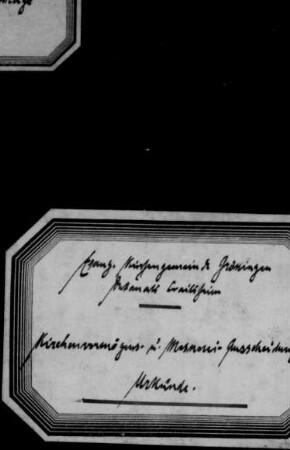 Evang. Kirchengemeinde Gröningen
Dekanats Crailsheim
Kirchenvermögens- u. Messnerei-Ausscheidung
Urkunde.